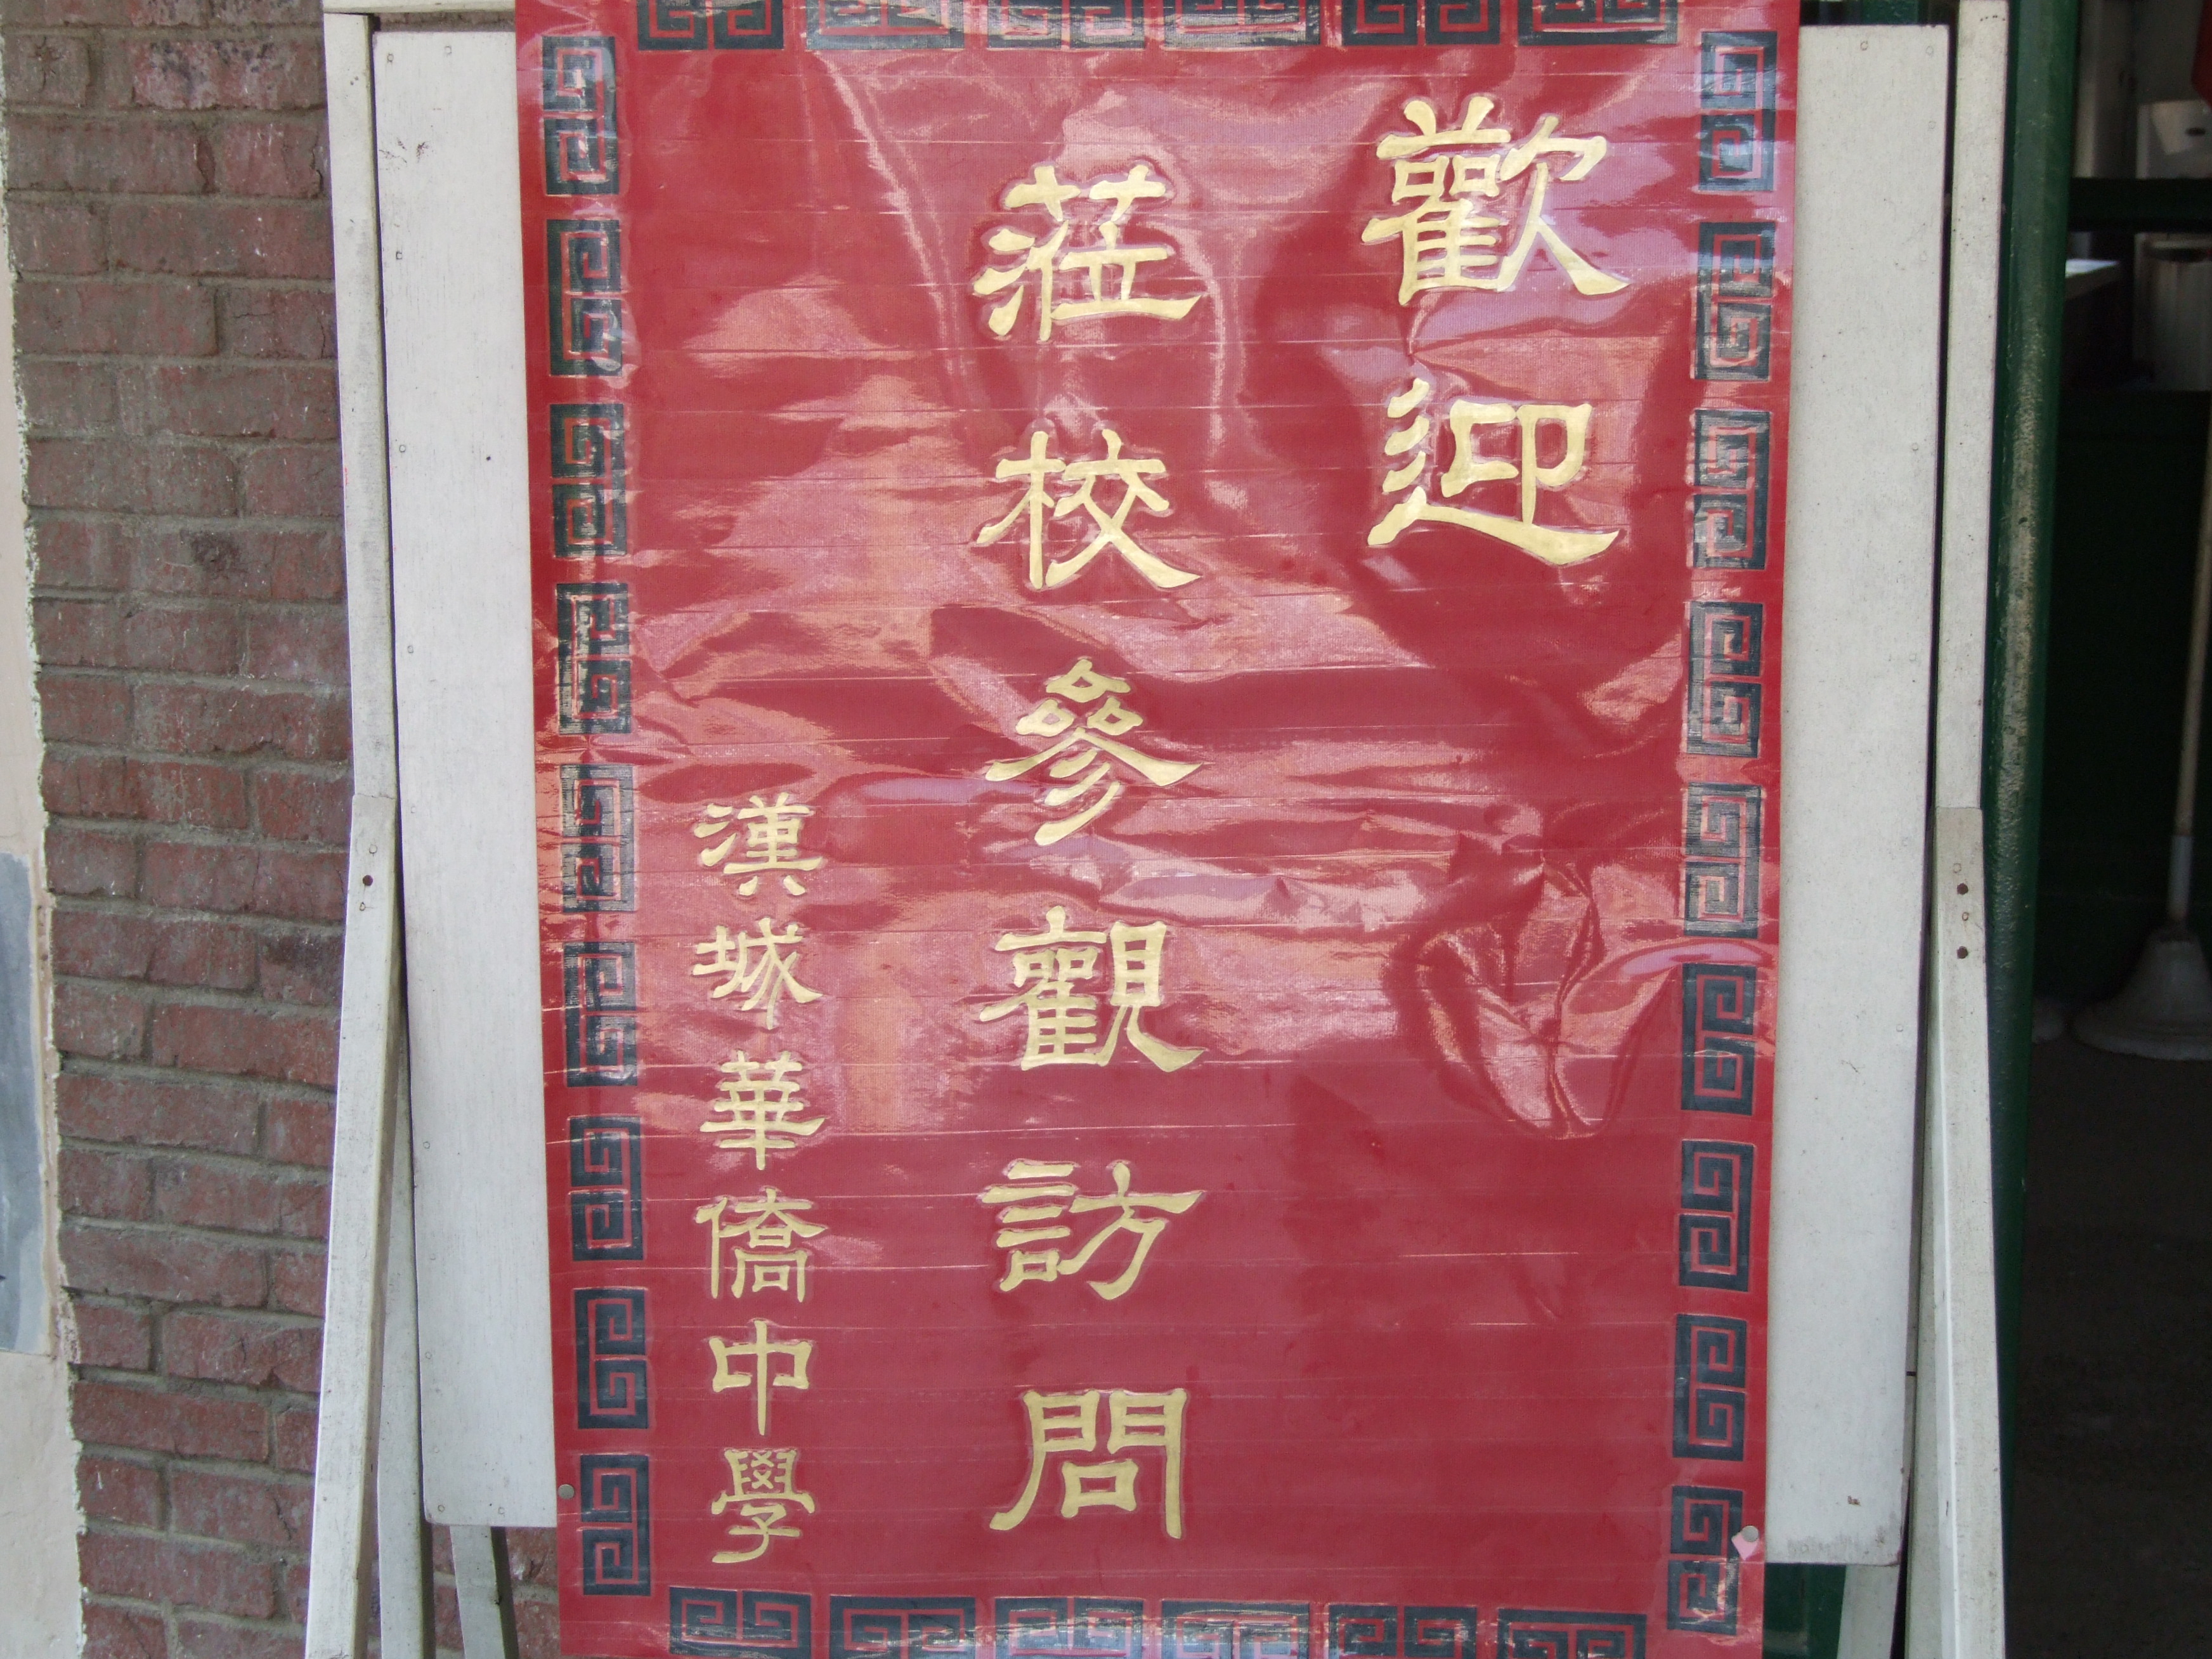 歡迎
蒞校參觀訪問
漢城華僑中學